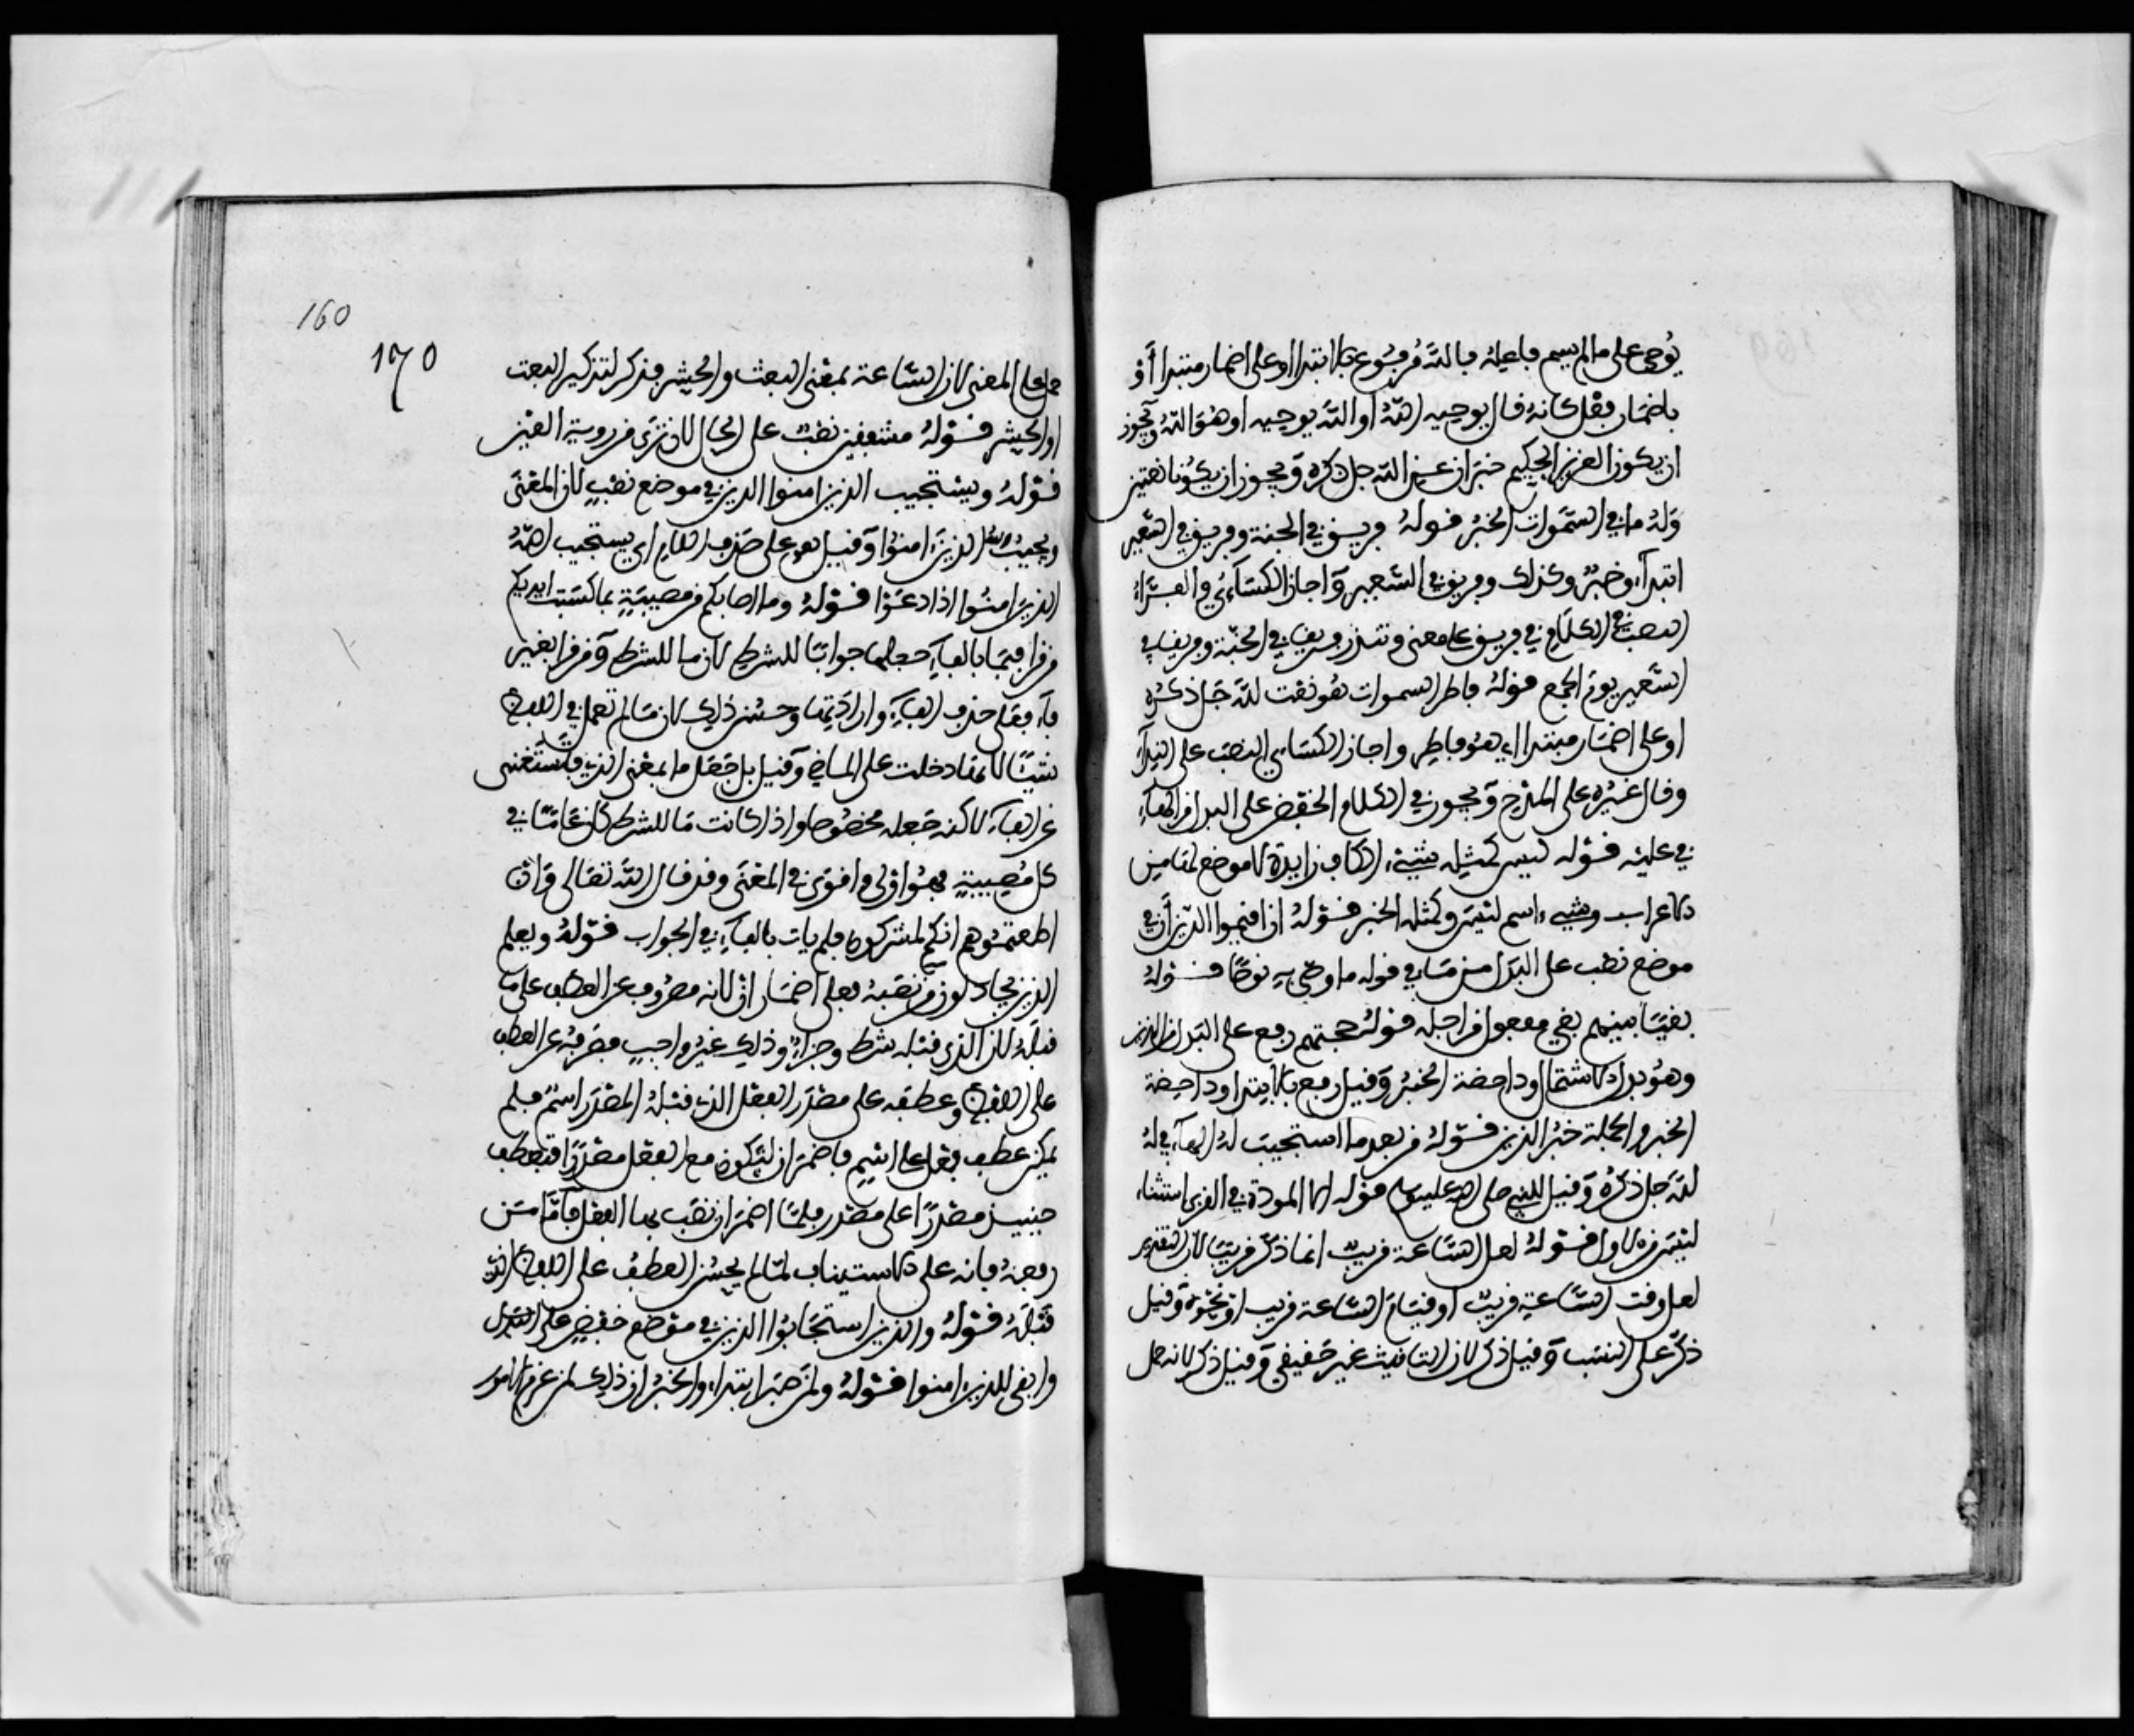 يُوحى على ما لم يسم فاعله فالله مرفوع بالابتدا او على اضمار مبتدا أو
باضمار فعل كانه قال يوحيه الله او الله يوحيه او هو الله ويجوز
ان يكون العزيز الحكيم خبران عن الله جل ذكره ويجوز ان يكونا نعتين
وله ما في السموات الخبر قوله فريق في الجنة وفريق في السعير
ابتدآء وخبر وكذلك وفريق في السعير واجاز الكسآءي والفرآء
النصب في الكلام في فريق على معنى وتنذر فريقا في الجنة وفريقا في
السعير يوم الجمع قوله فاطر السموات هو نعت لله جل ذكره
او على اضمار مبتدا اي هو فاطر واجاز الكساي النصب على النداء
وقال غيره على المدح ويجوز في الكلام الخفض على البدل من الهآء
في عليه قوله ليس كمثله شيء الكاف زايدة لا موضع لها من
الاعراب وشيء اسم ليس وكمثله الخبر قوله ان اقيموا الدين أن في
موضع نصب على البدل من ما في قوله ما وصى به نوحا قوله
بغيا بينهم بغي مفعول من اجله قوله حجتهم رفع على البدل من الذين
وهو بدل الاشتمال وداحضة الخبر وقيل رفع بالابتدا وداحضة
الخبر والجملة خبر الذين قوله من بعد ما استجيب له الهآء في له
لله جل ذكره وقيل للنبي صلى الله عليه وسلم قوله الا المودة في القربى استثناء
ليس من الاول قوله لعل الساعة قريب انما ذكر قريبا لان التقدير
لعل وقت الساعة قريب او قيام الساعة قريب او نحوه وقيل
ذكر على النسب وقيل ذكر لان التانيث غير حقيقي وقيل ذكر لانه حمل
160
170
حملا على المعنى لان الساعة بمعنى البعث والحشر فذكر لتذكير البعث
او الحشر قوله مشفقين نصب على الحال لان ترى من روية العين
قوله ويستجيب الذين امنوا الذين في موضع نصب لان المعنى
ويجيب الله الذين امنوا وقيل هو على حذف اللام اي يستجيب الله
للذين امنوا اذا دعوا قوله وما اصابكم من مصيبة بما كسبت ايديكم
من قرا فبما بالفآء جعلها جوابا للشرط لان ما للشرط ومن قرا بغير
فآء فعلى حذف الفآء وارادتها وحسن ذلك لان ما لم تعمل في اللفظ
شيئا لانها دخلت على الماضي وقيل بل جعل ما بمعنى الذي فاستغنى
عن الفآء لاكنه جعله مخصوصا واذا كانت ما للشرط كان عاما في
كل مصيبة فهو اولى واقوى في المعنى وقد قال الله تعالى وان
اطعتموهم انكم لمشركون فلم يات بالفآء في الجواب قوله ويعلم
الذين يجادلون من نصبه فعلى اضمار ان لانه مصروف عن العطف على ما
قبله لان الذي قبله شرط وجزآء وذلك غير واجب فصرفه عن العطف
على اللفظ وعطفه على مصدر الفعل الذي قبله المصدر اسم فلم
يمكن عطف فعل على اسم فاضمر ان لتكون مع الفعل مصدرا فتعطف
حينيذ مصدرا على مصدر فلما اضمر ان نصب بها الفعل فاما من
رفعه فانه على الاستيناف لما لم يحسن العطف على اللفظ الذي
قبله قوله والذين استجابوا الذين في موضع خفض على البدل
وابقى للذين امنوا قوله ولمن صبر ابتداء والخبر ان ذلك لمن عزم الامور